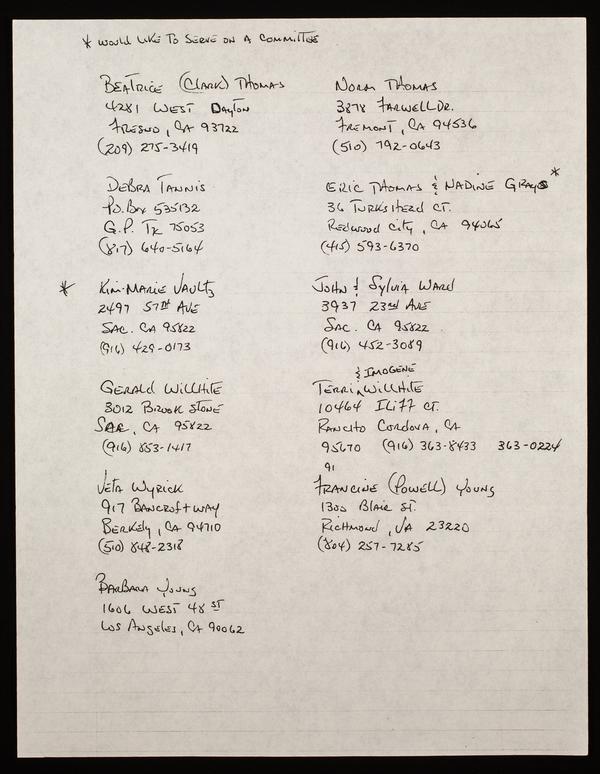 * WOULD LIKE TO SERVE ON A COMMITTEE
BEATRICE (CLARK) THOMAS
4281 WEST DAYTON
FRESNO, CA 93722
(209) 275-3419
DEBRA TANNIS
P.O. BOX 535132
G.P. TX 75053
(817) 640-5164
* KIM-MARIE VAULTZ
2497 57TH AVE
SAC. CA 95822
(916) 429-0173
GERALD WILLHITE
3012 BROOK STONE
SAC, CA 95822
(916) 853-1417
VETA WYRICK
917 BANCROFT WAY
BERKELY, CA 94710
(510) 848-2318
BARBARA YOUNG
1606 WEST 48 ST
LOS ANGELES, CA 90062
NORM THOMAS
3878 FARWELL DR.
FREMONT, CA 94536
(510) 792-0643
ERIC THOMAS & NADINE GRAYS *
36 TURKSHEAD CT.
REDWOOD CITY, CA 94065
(415) 593-6370
JOHN & SYLVIA WARD
3937 23RD AVE
SAC. CA 95822
(916) 452-3089
& IMOGENE
TERRI WILLHITE
10464 ILIFF CT.
RANCHO CORDOVA, CA
95670 (916) 363-8433 363-0224
91
FRANCINE (POWELL) YOUNG
1300 BLAIR ST.
RICHMOND, VA 23220
(804) 257-7285